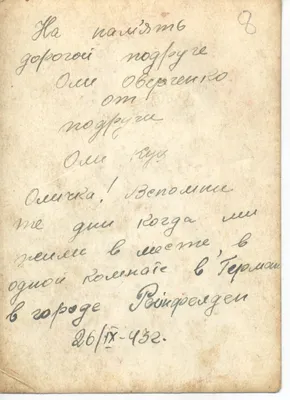 8
На памʼять
дорогой подруге
Оли Оверченко
от
подруги
Оли Кущ
Оличка! Вспомни
те дни когда ми
жили в месте, в
одной комнате в Герман
в городе Рейнфелден
26/IX-43г.